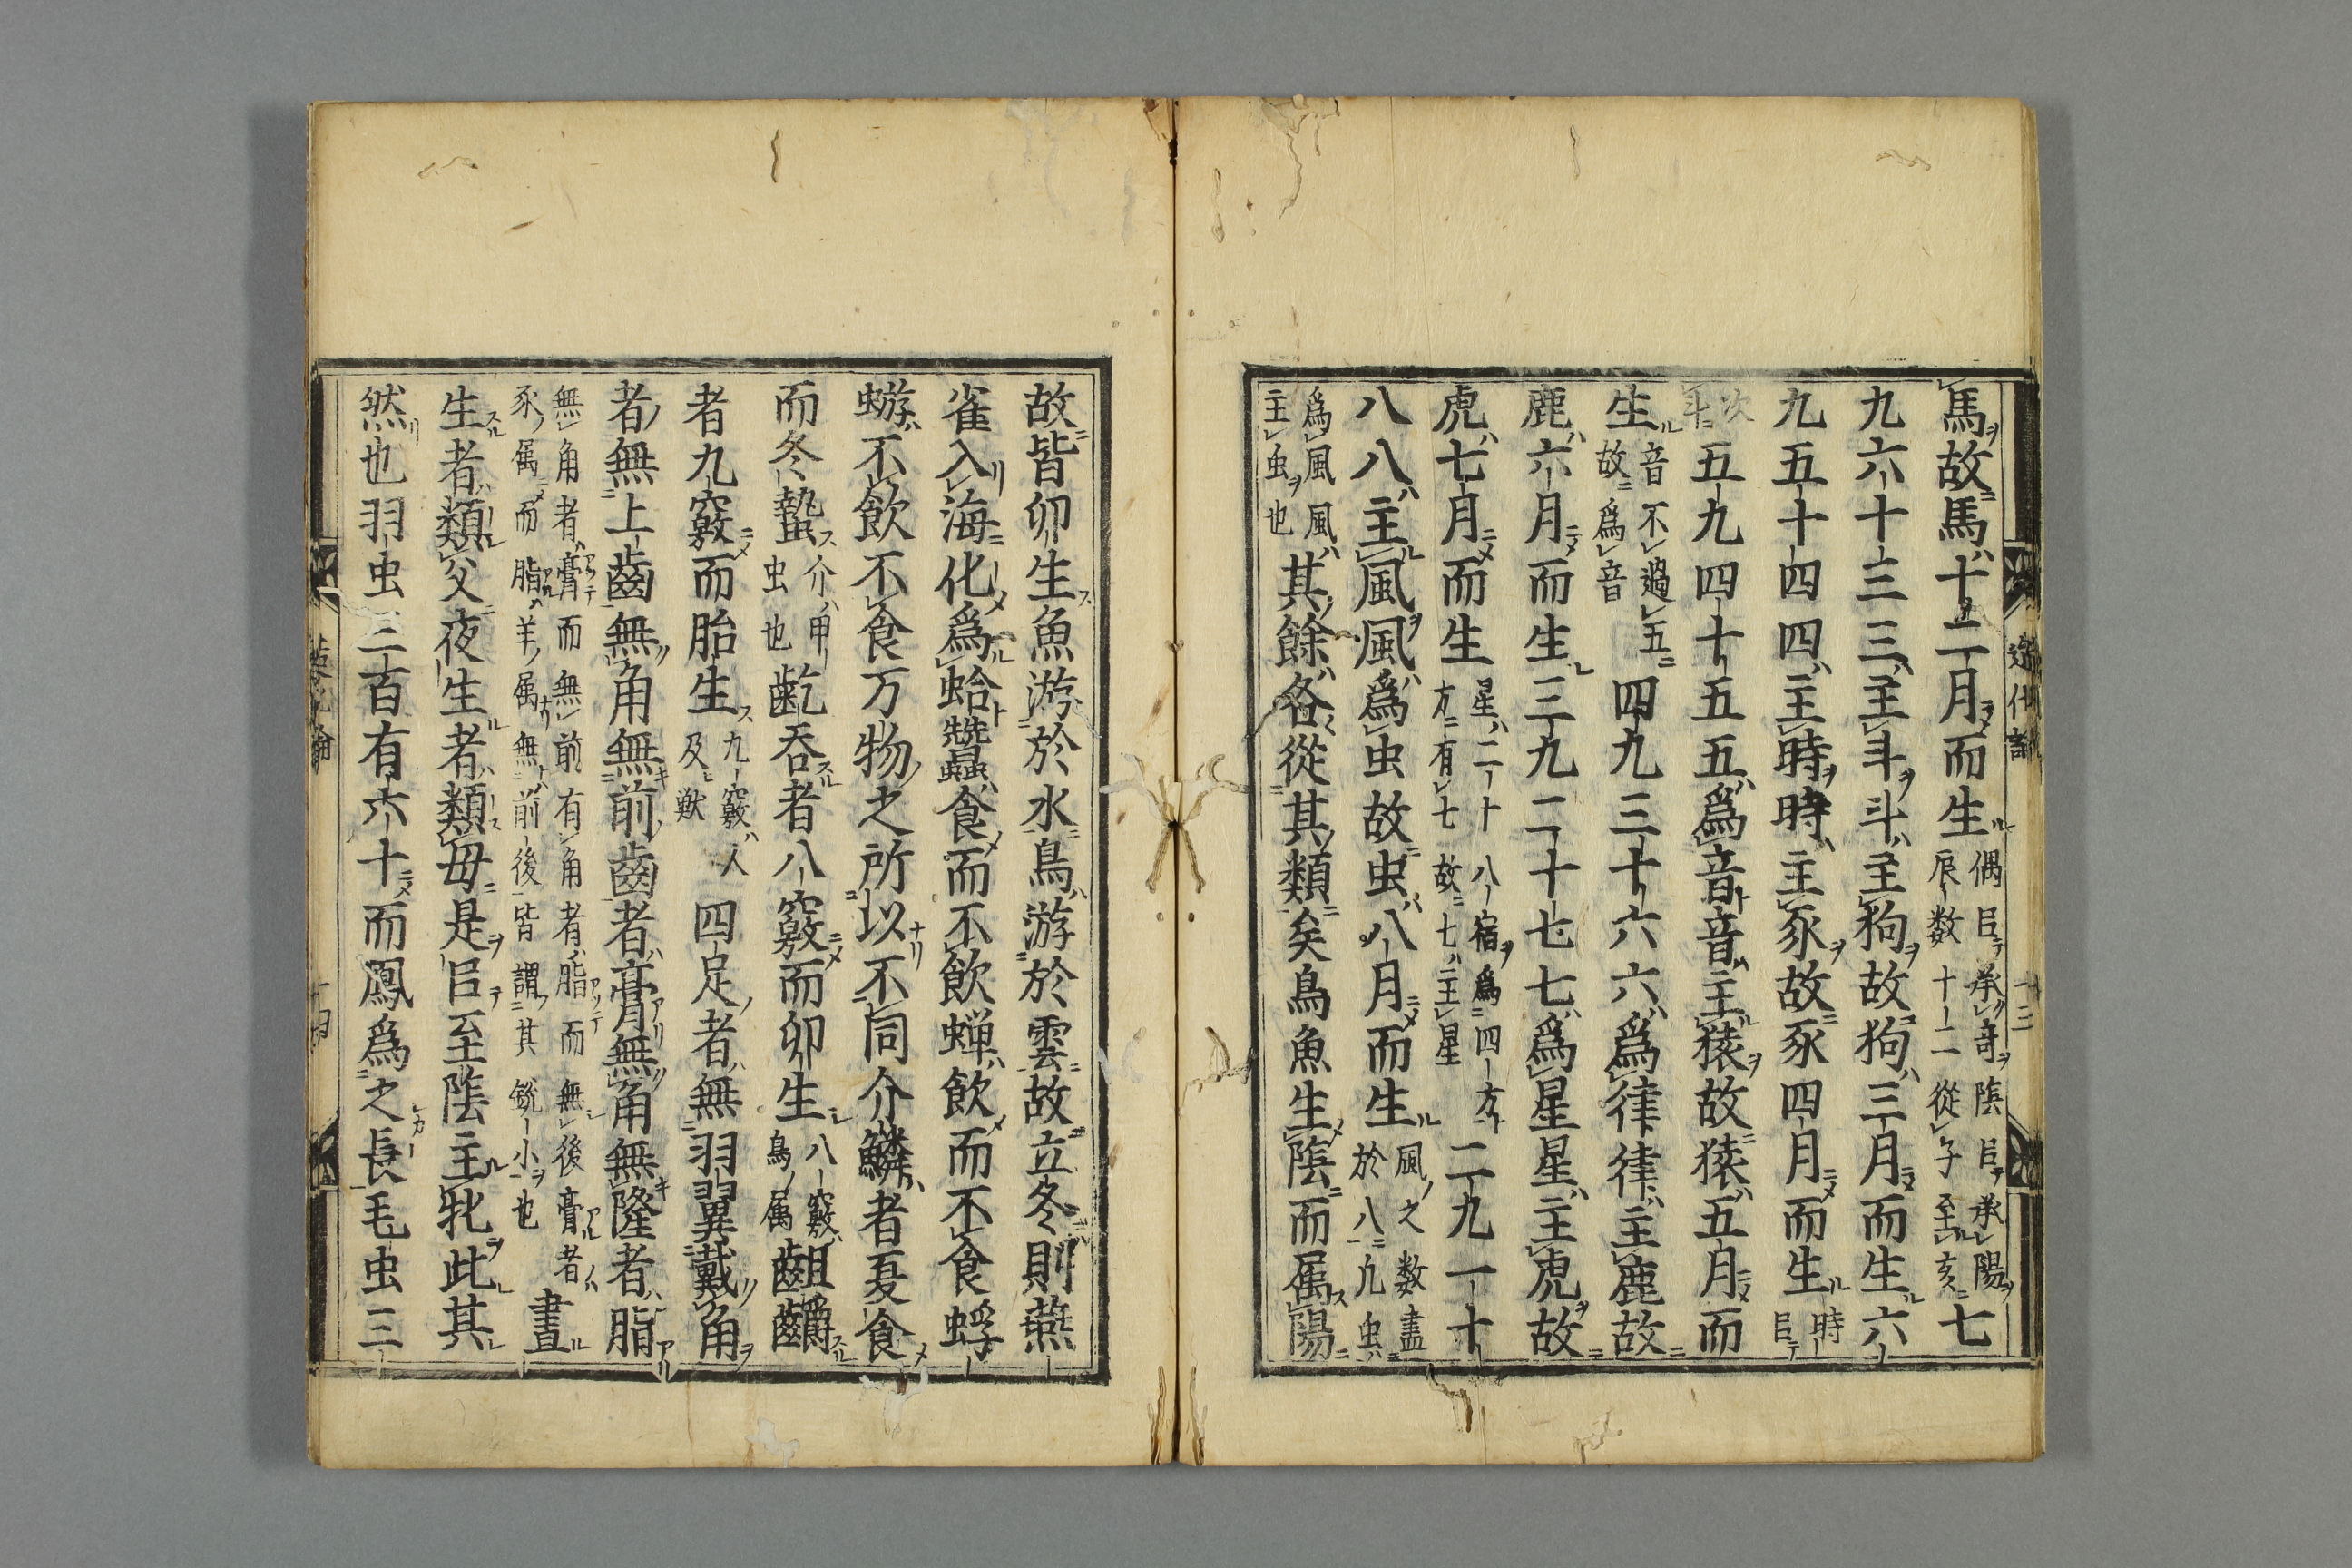 馬故馬十二月而生偶㠯承奇陰㠯承陽辰数十二從子至亥七
九六十三三主斗斗主狗故狗三月而生六
九五十四四主時時主豕故豕四月而生時㠯
次斗五九四十五五爲音音主猿故猿五月而
生音不過五故爲音四九三十六六爲律律主鹿故
鹿六月而生三九二十七七爲星星主虎故
虎七月而生星二十八宿爲四方方有七故七主星二九一十
八八主風風爲虫故虫八月而生風之数盡於八凢虫
爲風風主虫也其餘各從其類矣鳥魚生陰而属陽
故皆卵生魚游於水鳥游於雲故立冬則燕
雀入海化爲蛤蠶食而不飲蝉飲而不食蜉
蝣不飲不食万物之所以不同介鱗者夏食
而冬蟄介甲虫也齕吞者八竅而卵生八竅鳥属齟嚼
者九竅而胎生九竅人及獸四足者無羽翼戴角
者無上齒無角無前齒者膏無角無隆者脂
無角者膏而無前有角者脂而無後膏者豕属而脂羊属無前後皆謂其銳小也晝
生者類父夜生者類毋是㠯至陰主牝此其
然也羽虫三百有六十而鳳爲之長毛虫三